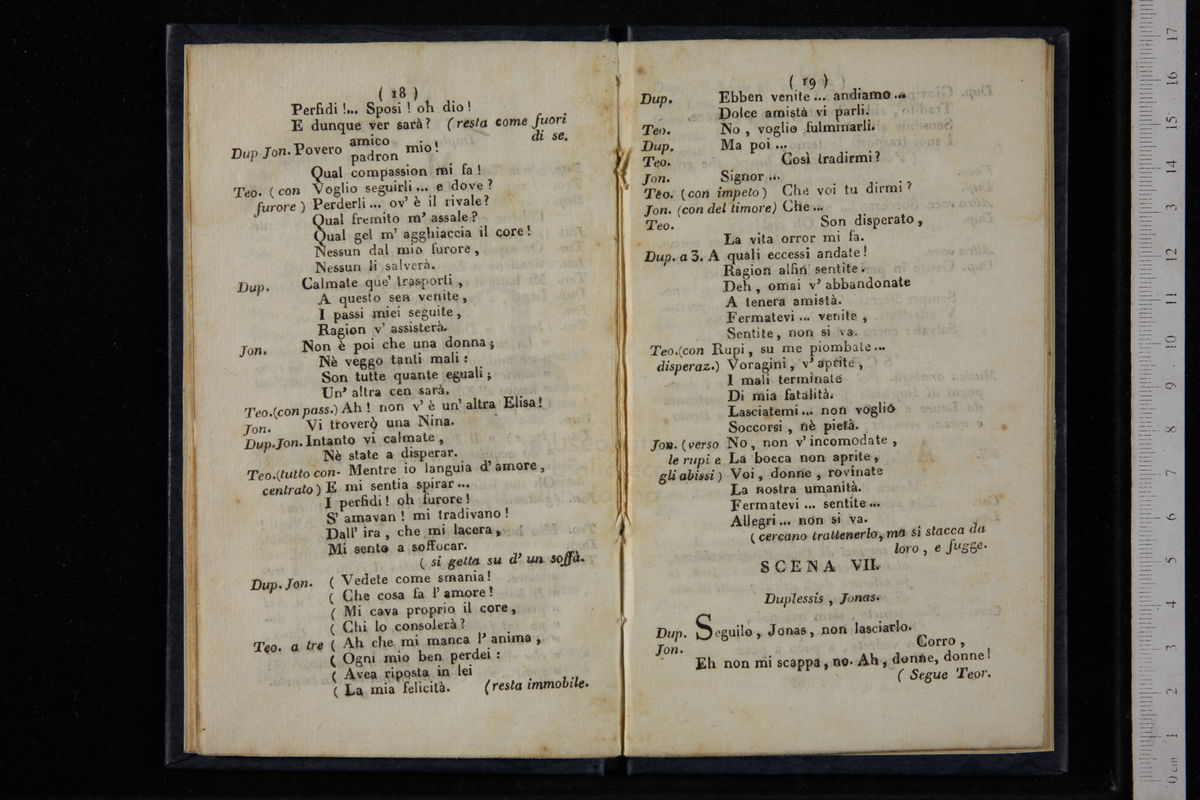 ( 18 )
Perfidi !... Sposi ! oh dio !
E dunque ver sarà ? (resta come fuori
di se.
Dup Jon. Povero amico padron mio !
Qual compassion mi fa !
Teo. ( con Voglio seguirli ... e dove ?
furore ) Perderli ... ov' è il rivale ?
Qual fremito m' assale ?
Qual gel m' agghiaccia il core !
Nessun dal mio furore ,
Nessun li salverà.
Dup. Calmate que' trasporti ,
A questo sen venite ,
I passi miei seguite ,
Ragion v' assisterà.
Jon. Non è poi che una donna ;
Nè veggo tanti mali :
Son tutte quante eguali ;
Un' altra cen sarà.
Teo.(con pass.) Ah ! non v' è un' altra Elisa !
Jon. Vi troverò una Nina.
Dup.Jon. Intanto vi calmate ,
Nè state a disperar.
Teo.(tutto con- Mentre io languia d' amore ,
centrato ) E mi sentia spirar ...
I perfidi ! oh furore !
S' amavan ! mi tradivano !
Dall' ira , che mi lacera ,
Mi sento a soffocar.
( si getta su d' un soffà.
Dup. Jon. ( Vedete come smania !
( Che cosa fa l' amore !
( Mi cava proprio il core ,
( Chi lo consolerà ?
Teo. a tre ( Ah che mi manca l' anima ,
( Ogni mio ben perdei :
( Avea riposta in lei
( La mia felicità. (resta immobile.
( 19 )
Dup. Ebben venite ... andiamo ...
Dolce amistà vi parli.
Teo. No , voglio fulminarli.
Dup. Ma poi ...
Teo. Così tradirmi ?
Jon. Signor ...
Teo. (con impeto) Che voi tu dirmi ?
Jon. (con del timore) Che ...
Teo. Son disperato ,
La vita orror mi fa.
Dup. a 3. A quali eccessi andate !
Ragion alfin sentite.
Deh , omai v' abbandonate
A tenera amistà.
Fermatevi ... venite ,
Sentite , non si va.
Teo.(con Rupi , su me piombate ...
disperaz.) Voragini , v' aprite ,
I mali terminate
Di mia fatalità.
Lasciatemi ... non voglio
Soccorsi , nè pietà.
Jon. (verso No , non v' incomodate ,
le rupi e La bocca non aprite ,
gli abissi ) Voi , donne , rovinate
La nostra umanità.
Fermatevi ... sentite ...
Allegri ... non si va.
( cercano trattenerlo, ma si stacca da
loro , e fugge.
SCENA VII.
Duplessis , Jonas.
Dup. Seguilo , Jonas, non lasciarlo.
Jon. Corro ,
Eh non mi scappa, no. Ah , donne, donne !
( Segue Teor.
0 cm 1 2 3 4 5 6 7 8 9 10 11 12 13 14 15 16 17